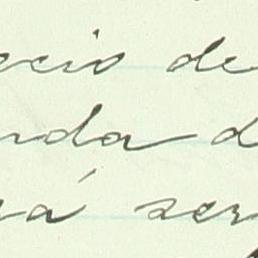 ecio de
nda d
rá ser